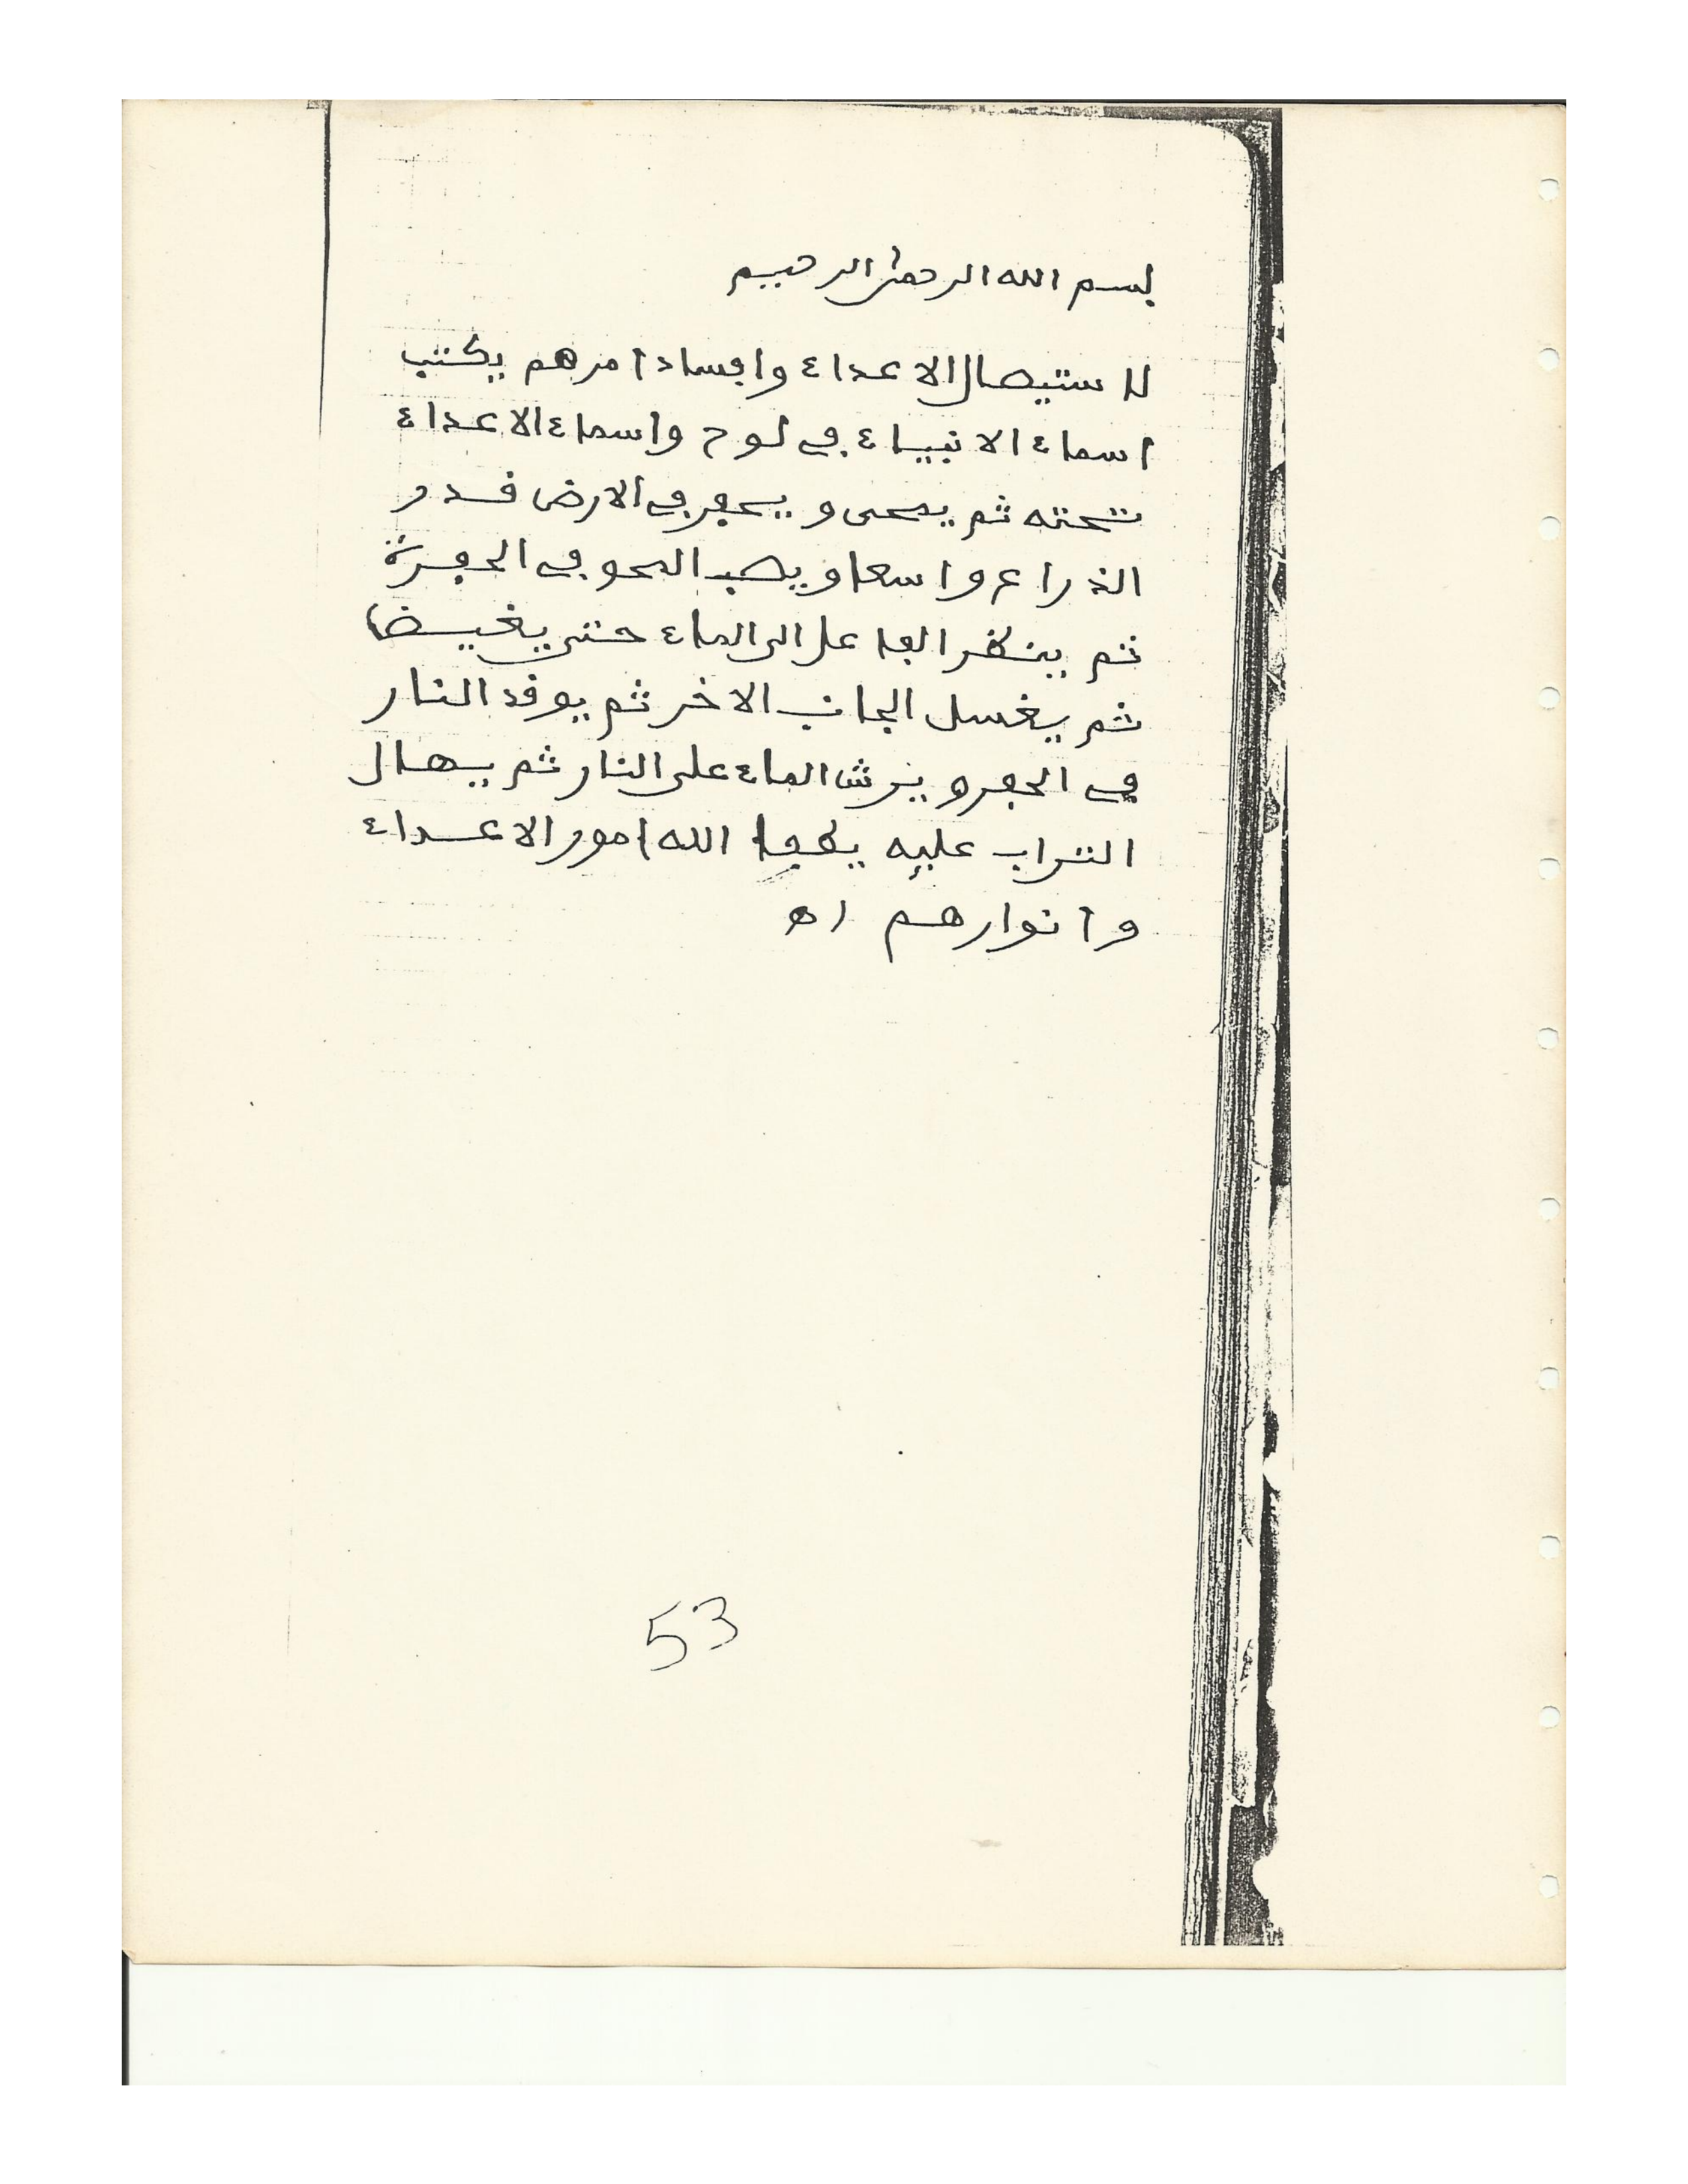 بسم الله الرحمن الرحيم
لاستيصال الاعداء وافساد امرهم يكتب
اسماء الانبياء في لوح واسماء الاعداء
تحته ثم يمحى و يحفر في الارض قدر
الذراع واسعا ويصب المحو في الحفرة
ثم ينظر الفاعل الى الماء حتى يغيض
ثم يغسل الجانب الاخر ثم يوقد النار
في الحفر و يرش الماء على النار ثم يهال
التراب عليه يطفا الله امور الاعداء
وانوارهم اه
53